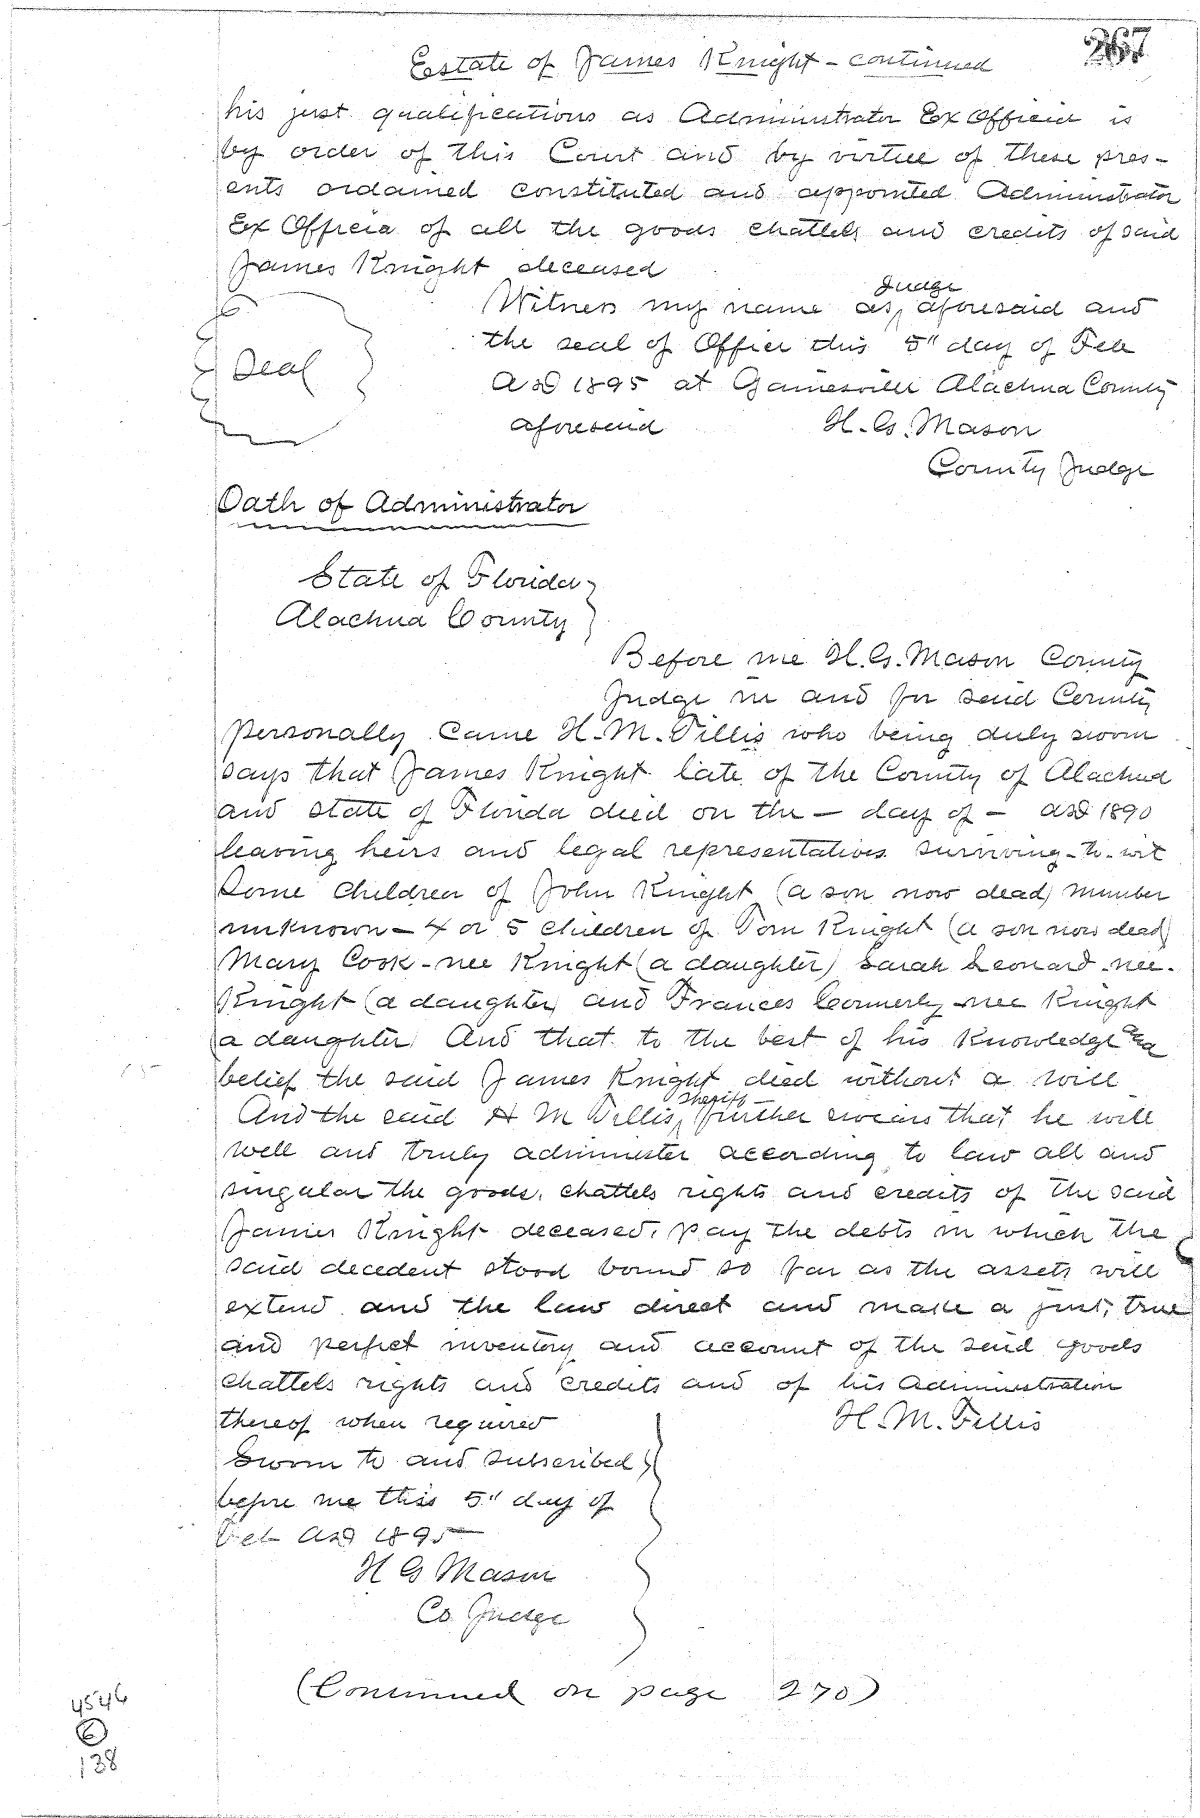 267
Estate of James Knight - continued
his just qualifications as Administrator Ex Officio is
by order of this Court and by virtue of these pres-
ents ordained constituted and appointed Administrator
Ex Officio of all the goods chattels and credits of said
James Knight deceased
Judge
Witness my name as, aforesaid and
the seal of Office this 5" day of Feb
AD 1895 at Gainesville Alachua County
Seal
aforesaid H. G. Mason
County Judge
Oath of Administrator
State of Florida
Alachua County
Before me H. G. Mason County
Judge in and for said County
personally came H. M. Tillis who being duly sworn
says that James Knight late of the County of Alachua
and state of Florida died on the — day of — AD 1890
leaving heirs and legal representatives surviving-to-wit
Some children of John Knight (a son now dead) number
unknown — 4 or 5 children of Tom Knight (a son now dead)
Mary Cook - nee Knight (a daughter) Sarah Leonard - nee -
Knight (a daughter) and Frances Connerly - nee Knight
(a daughter) And that to the best of his Knowledge and
belief the said James Knight died without a will
sheriff
And the said H M Tillis, further swears that he will
well and truly administer according to law all and
singular the goods, chattels rights and credits of the said
James Knight deceased, pay the debts in which the
said decedent stood bound so far as the assets will
extend and the law direct and make a just, true
and perfect inventory and account of the said goods
chattels rights and credits and of his Administration
thereof when required H. M. Tillis
Sworn to and subscribed
before me this 5" day of
Feb AD 1895
H G Mason
Co Judge
(Continued on page 270)
4546
6
138